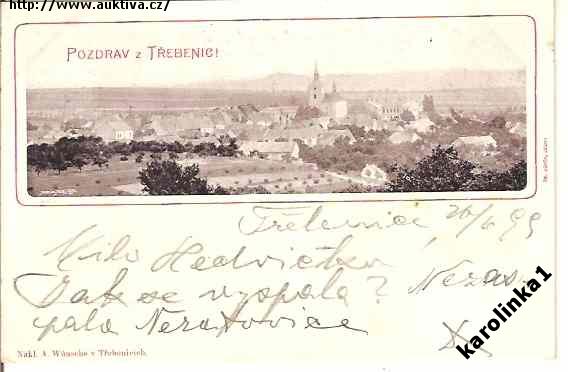 http://www.auktiva.cz/
POZDRAV z TŘEBENIC!
Třebenice 26/6 99
Milo Hedvičko,
Jak se vyspala? Nezas-
pala Neratovice
Nákl. A. Wünsche v Třebenicích.
karolinka1